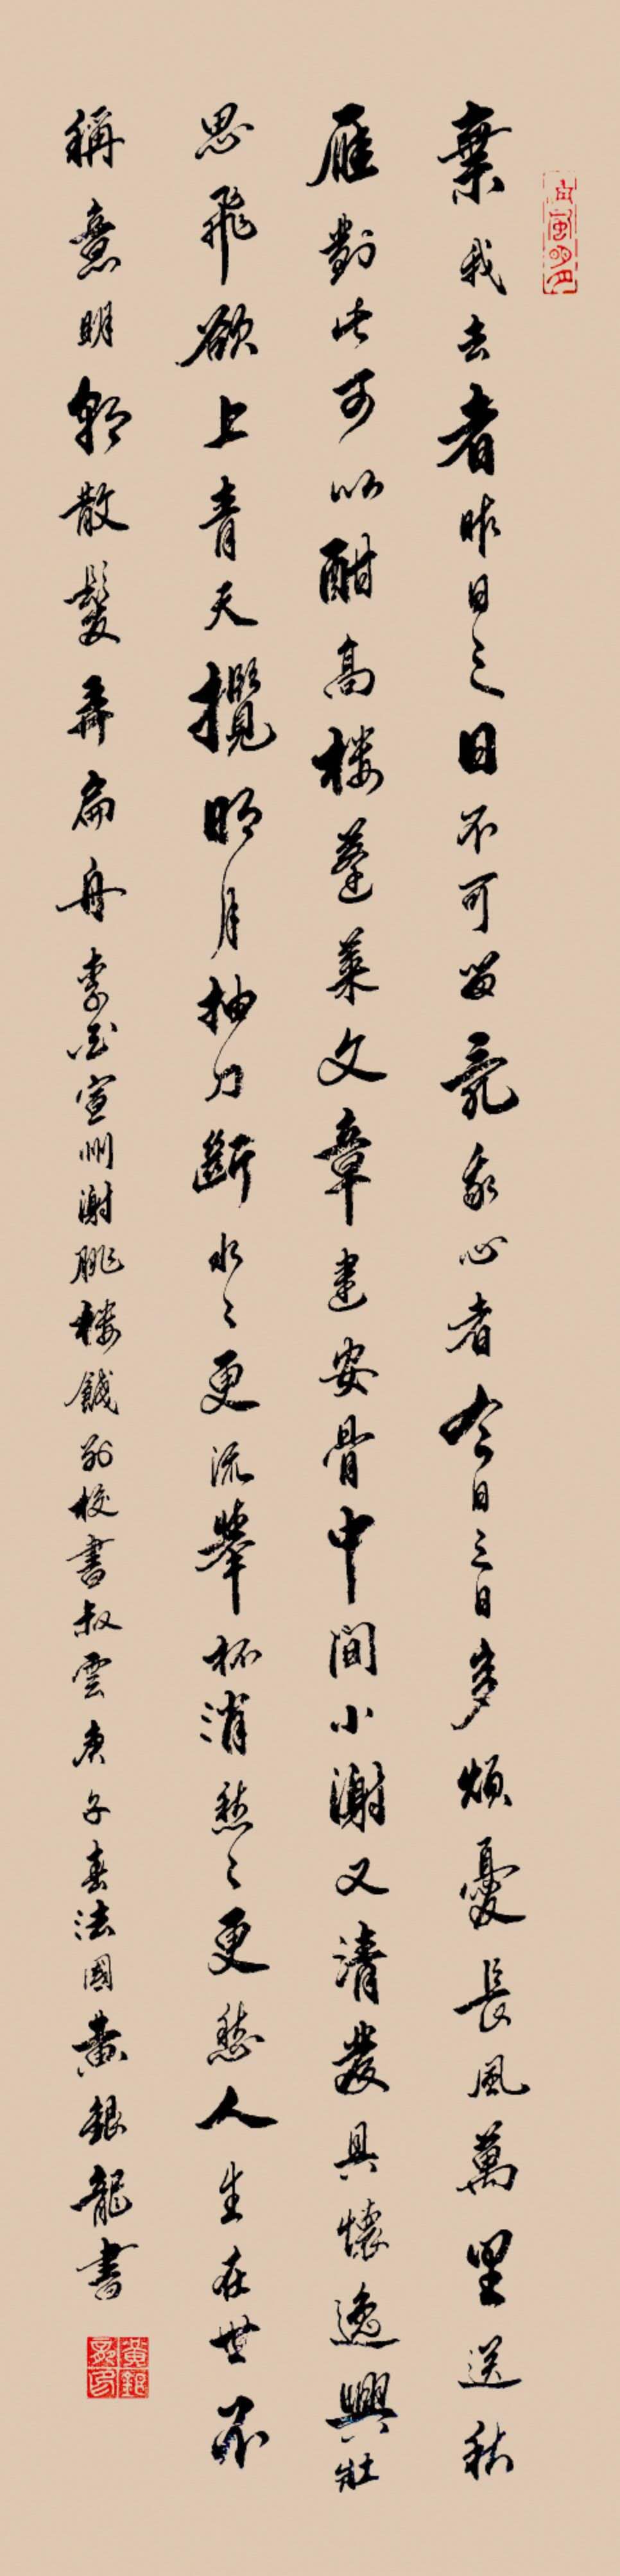 棄我去者昨日之日不可留亂我心者今日之日多煩憂長風萬里送秋
雁對此可以酣高樓蓬萊文章建安骨中間小謝又清發具懷逸興壯
思飛欲上青天攬明月抽刀斷水〻更流舉杯消愁〻更愁人生在世不
稱意明朝散髮弄扁舟李白宣州謝朓樓餞別校書叔雲庚子春法國黃銀龍書
清風明月
黃銀龍印